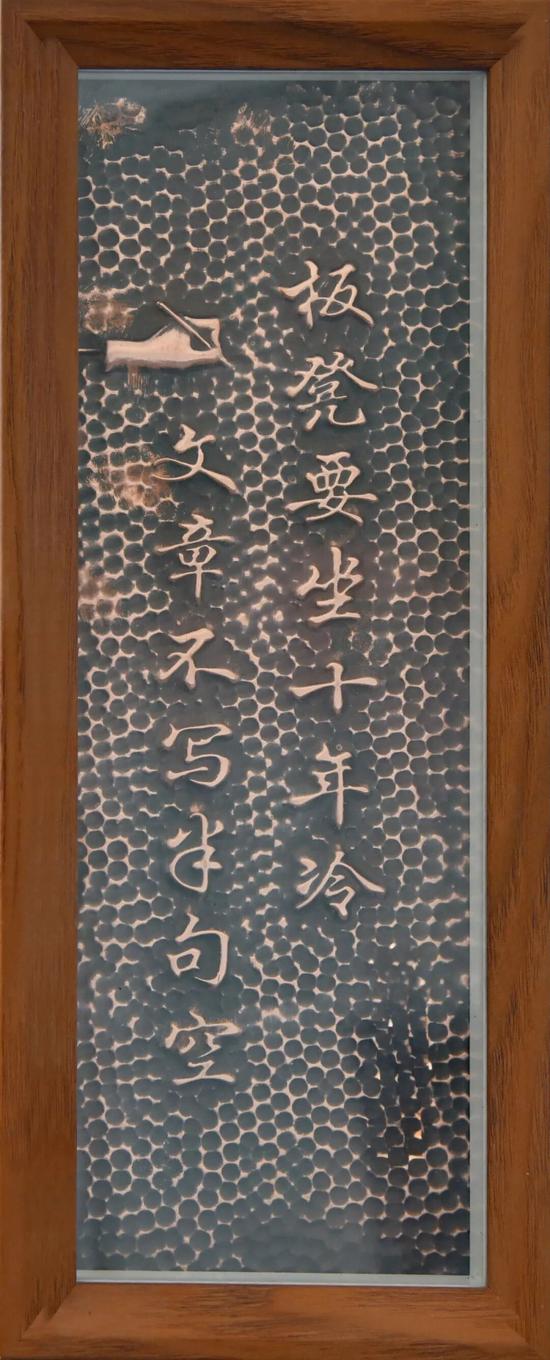 板凳要坐十年冷
文章不写半句空